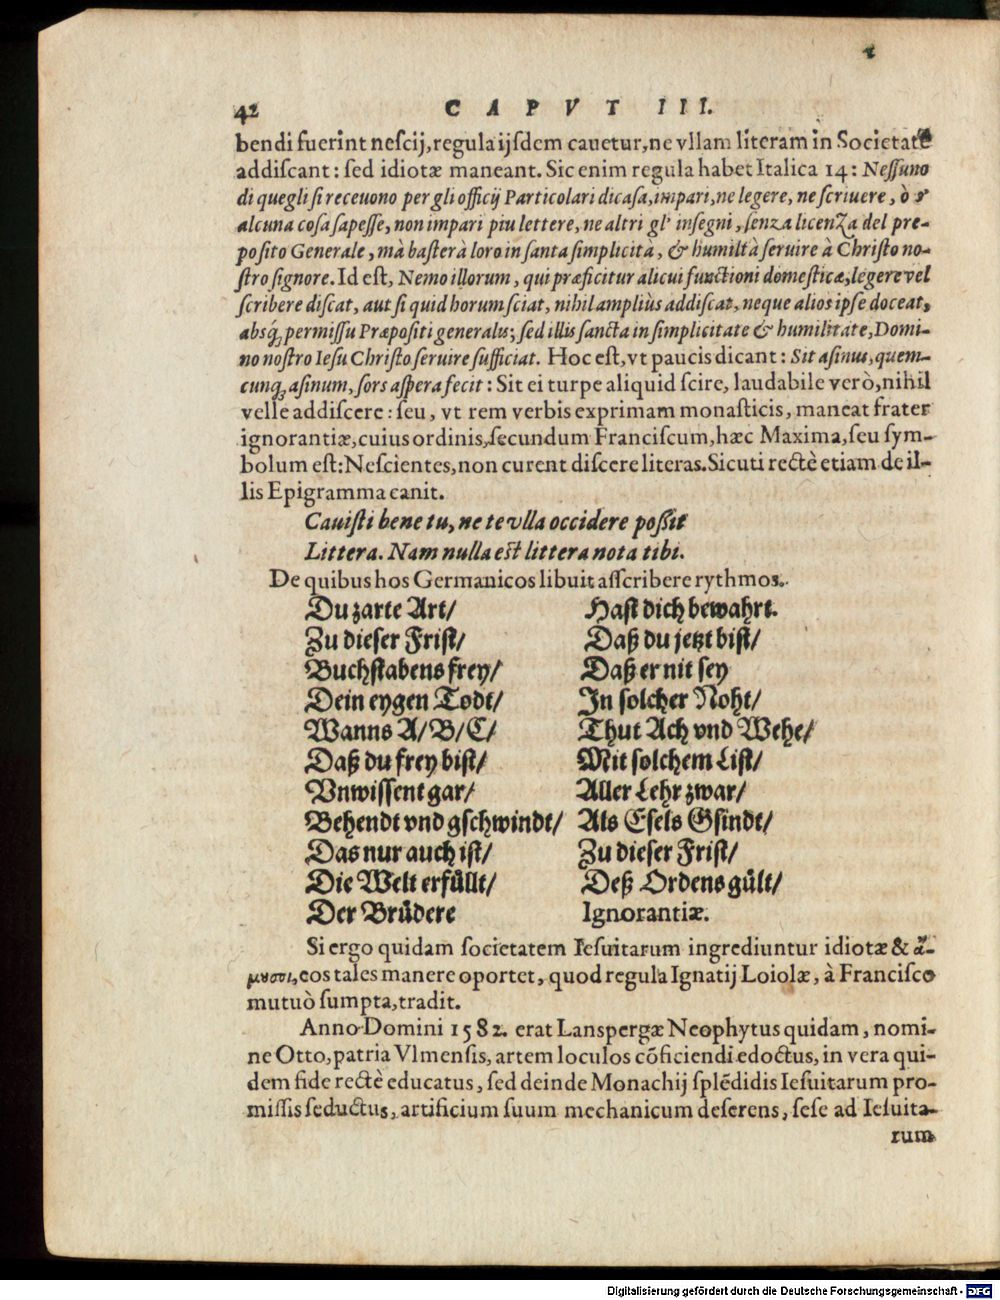 42 CAPVT III.
bendi fuerint nescij, regula ijsdem cauetur, ne vllam literam in Societate
addiscant: sed idiotæ maneant. Sic enim regula habet Italica 14: Nessuno
di quegli si receuono per gli officij Particolari di casa, impari, ne legere, ne scriuere, ò s'
alcuna cosa sapesse, non impari piu lettere, ne altri gl' insegni, senza licenza del pre-
posito Generale, mà basterà loro in santa simplicità, & humiltà seruire à Christo no-
stro signore. Id est, Nemo illorum, qui præficitur alicui functioni domesticæ, legere vel
scribere discat, aut si quid horum sciat, nihil ampliùs addiscat, neque alios ipse doceat,
absq; permissu Præpositi generalis; sed illis sancta in simplicitate & humilitate, Domi-
no nostro Iesu Christo seruire sufficiat. Hoc est, vt paucis dicant: Sit asinus, quem-
cunq; asinum, sors aspera fecit: Sit ei turpe aliquid scire, laudabile verò, nihil
velle addiscere: seu, vt rem verbis exprimam monasticis, maneat frater
ignorantiæ, cuius ordinis, secundum Franciscum, hæc Maxima, seu sym-
bolum est: Nescientes, non curent discere literas. Sicuti rectè etiam de il-
lis Epigramma canit.
Cauisti bene tu, ne te vlla occidere possit
Littera. Nam nulla est littera nota tibi.
De quibus hos Germanicos libuit asscribere rythmos.
Du zarte Art/ Hast dich bewahrt.
Zu dieser Frist/ Daß du jetzt bist/
Buchstabens frey/ Daß er nit sey
Dein eygen Todt/ In solcher Noht/
Wanns A/B/C/ Thut Ach vnd Wehe/
Daß du frey bist/ Mit solchem List/
Vnwissent gar/ Aller Lehr zwar/
Behendt vnd gschwindt/ Als Esels Gsindt/
Das nur auch ist/ Zu dieser Frist/
Die Welt erfüllt/ Deß Ordens gült/
Der Brüdere Ignorantiæ.
Si ergo quidam societatem Iesuitarum ingrediuntur idiotæ & ἄ-
μουσοι, eos tales manere oportet, quod regula Ignatij Loiolæ, à Francisco
mutuò sumpta, tradit.
Anno Domini 1582. erat Lanspergæ Neophytus quidam, nomi-
ne Otto, patria Vlmensis, artem loculos cōficiendi edoctus, in vera qui-
dem fide rectè educatus, sed deinde Monachij splēdidis Iesuitarum pro-
missis seductus, artificium suum mechanicum deserens, sese ad Iesuita-
rum
Digitalisierung gefördert durch die Deutsche Forschungsgemeinschaft - DFG